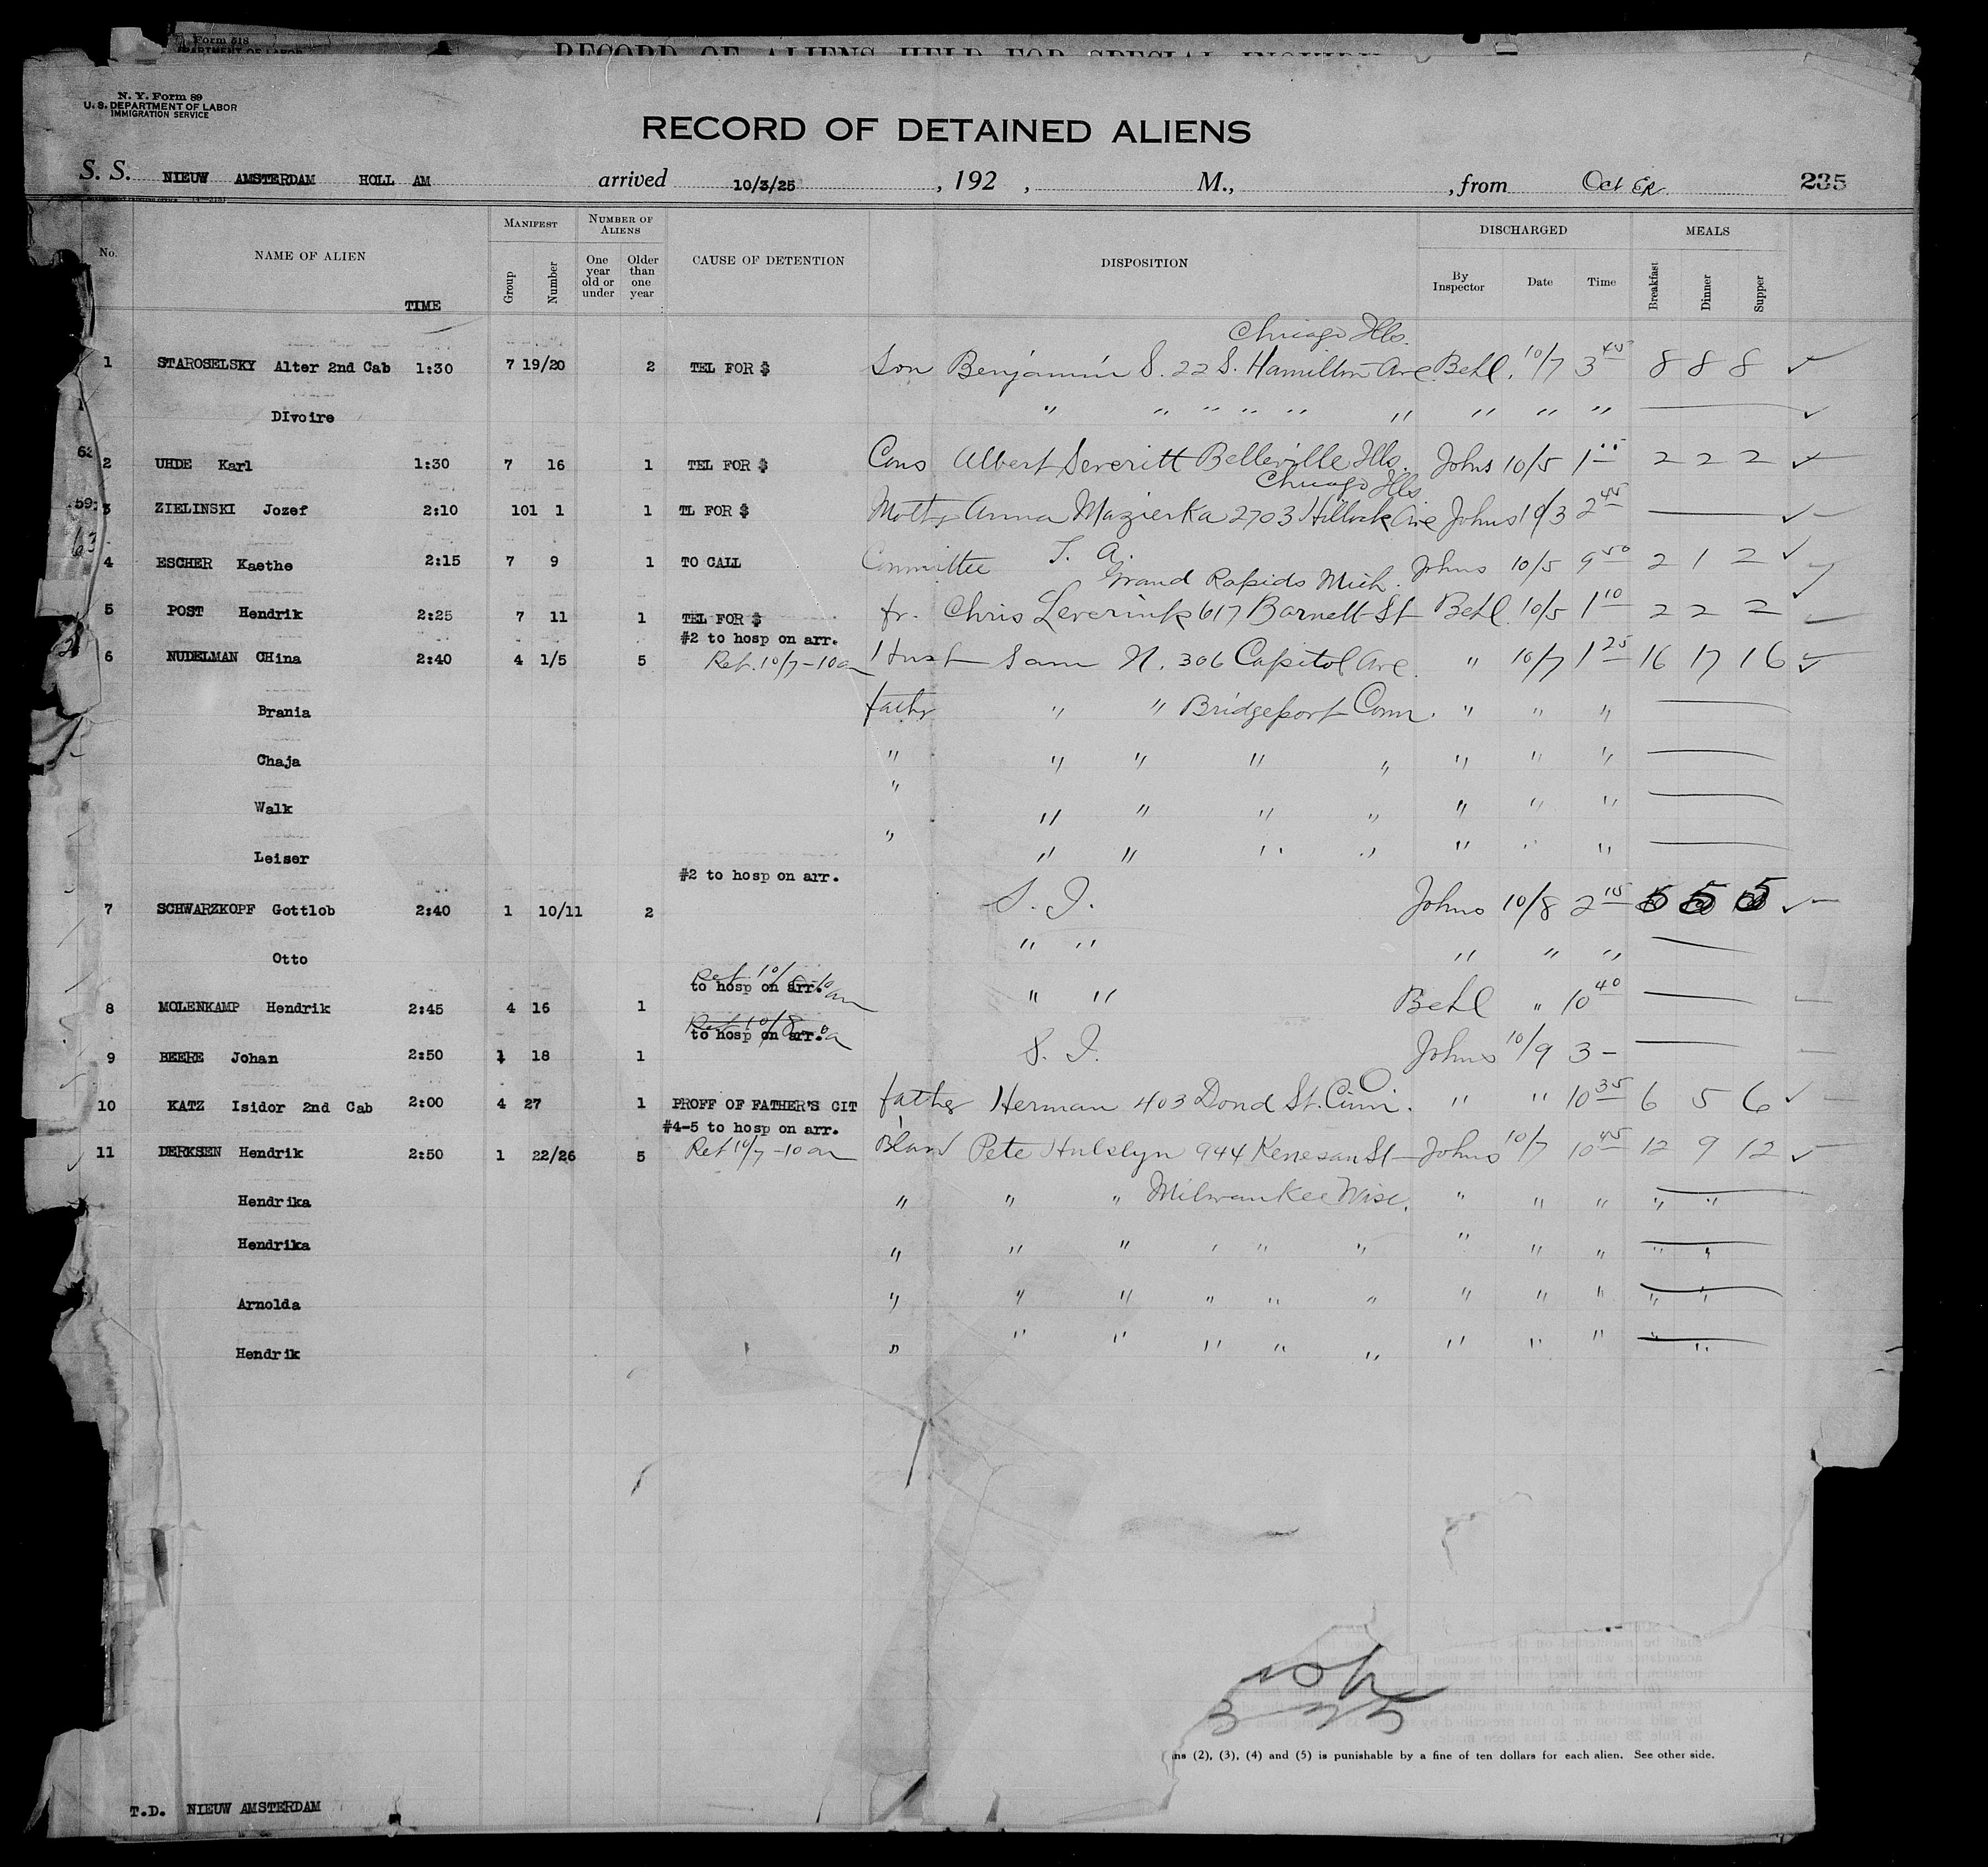 Form 518
DEPARTMENT OF LABOR
RECORD OF ALIENS HELD FOR SPECIAL INQUIRY
N. Y. Form 89
U. S. DEPARTMENT OF LABOR
IMMIGRATION SERVICE
RECORD OF DETAINED ALIENS
S. S. NIEUW AMSTERDAM HOLL AM arrived 10/3/25 , 192 , M., , from Oct 235
No. NAME OF ALIEN TIME MANIFEST Group Number NUMBER OF ALIENS One year old or under Older than one year CAUSE OF DETENTION DISPOSITION DISCHARGED By Inspector Date Time MEALS Breakfast Dinner Supper
Chicago Ills.
1 STAROSELSKY Alter 2nd Cab 1:30 7 19/20 2 TEL FOR $ Son Benjamin S. 22 S. Hamilton Ave Behl. 10/7 3 45 8 8 8 ✓
DIvoire " " " " " " " " " ✓
2 UHDE Karl 1:30 7 16 1 TEL FOR $ Cons Albert Severitt Belleville Ills. Johns 10/5 1 2 2 2 ✓
Chicago Ills.
3 ZIELINSKI Jozef 2:10 101 1 1 TL FOR $ Moth Anna Mazierka 2703 Hillock Ave Johns 10/3 2 45 ✓
4 ESCHER Kaethe 2:15 7 9 1 TO CALL Committee T. A. Johns 10/5 9 50 2 1 2 ✓
Grand Rapids Mich.
5 POST Hendrik 2:25 7 11 1 TEL FOR $ fr. Chris Leverink 617 Barnett St Behl. 10/5 1 10 2 2 2
#2 to hosp on arr.
6 NUDELMAN CHina 2:40 4 1/5 5 Ret. 10/7 - 10 am Husb Sam N. 306 Capitol Ave. " 10/7 1 25 16 17 16 ✓
Brania fath " " Bridgeport Conn. " " "
Chaja " " " " " " " "
Walk " " " " " " " "
Leiser " " " " " " " "
#2 to hosp on arr.
7 SCHWARZKOPF Gottlob 2:40 1 10/11 2 S. I. Johns 10/8 2 15 5 5 5 ✓
Otto " " " " "
Ret 10/8 10 am
to hosp on arr.
8 MOLENKAMP Hendrik 2:45 4 16 1 " " Behl " 10 40
Ret 10/8
to hosp on arr.
9 BEERE Johan 2:50 1 18 1 S. I. Johns 10/9 3 -
10 KATZ Isidor 2nd Cab 2:00 4 27 1 PROFF OF FATHER'S CIT father Herman 403 Dond St. Cinn. O " " 10 35 6 5 6 ✓
#4-5 to hosp on arr.
11 DERKSEN Hendrik 2:50 1 22/26 5 Ret 10/7 - 10 am Blaw Pete Hulslyn 944 Kenesan St Johns 10/7 10 45 12 9 12 ✓
Hendrika " " " Milwaukee Wisc. " " " " "
Hendrika " " " " " " " " " " "
Arnolda " " " " " " " " " " "
Hendrik " " " " " " " " " " "
ns (2), (3), (4) and (5) is punishable by a fine of ten dollars for each alien. See other side.
T.D. NIEUW AMSTERDAM